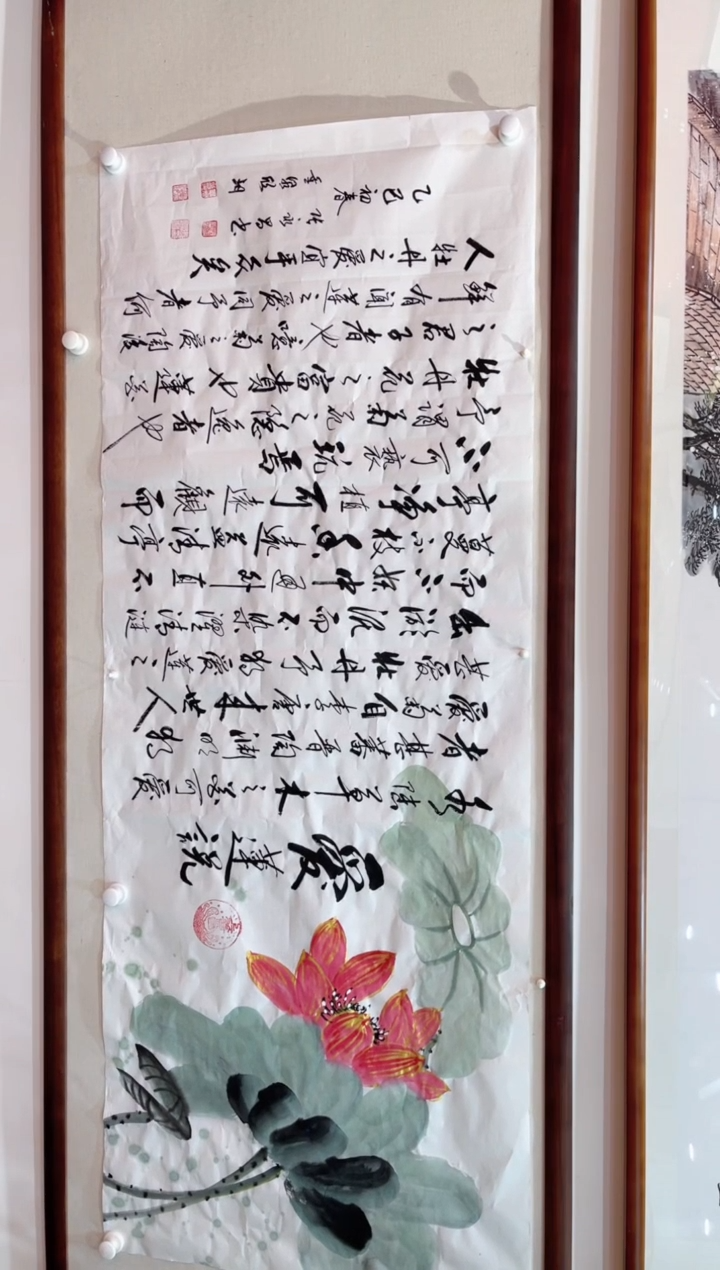 愛蓮說
水陸草木之花可愛
者甚蕃晉陶淵明獨
愛菊自李唐來世人
甚愛牡丹予獨愛蓮之
出淤泥而不染濯清漣
而不妖中通外直不
蔓不枝香遠益清亭
亭淨植可遠觀而
不可褻玩焉
予謂菊花之隱逸者也
牡丹花之富貴也蓮花
之君子者也噫菊之愛陶後
鮮有聞蓮之愛同予者何
人牡丹之愛宜乎眾矣
乙巳初春